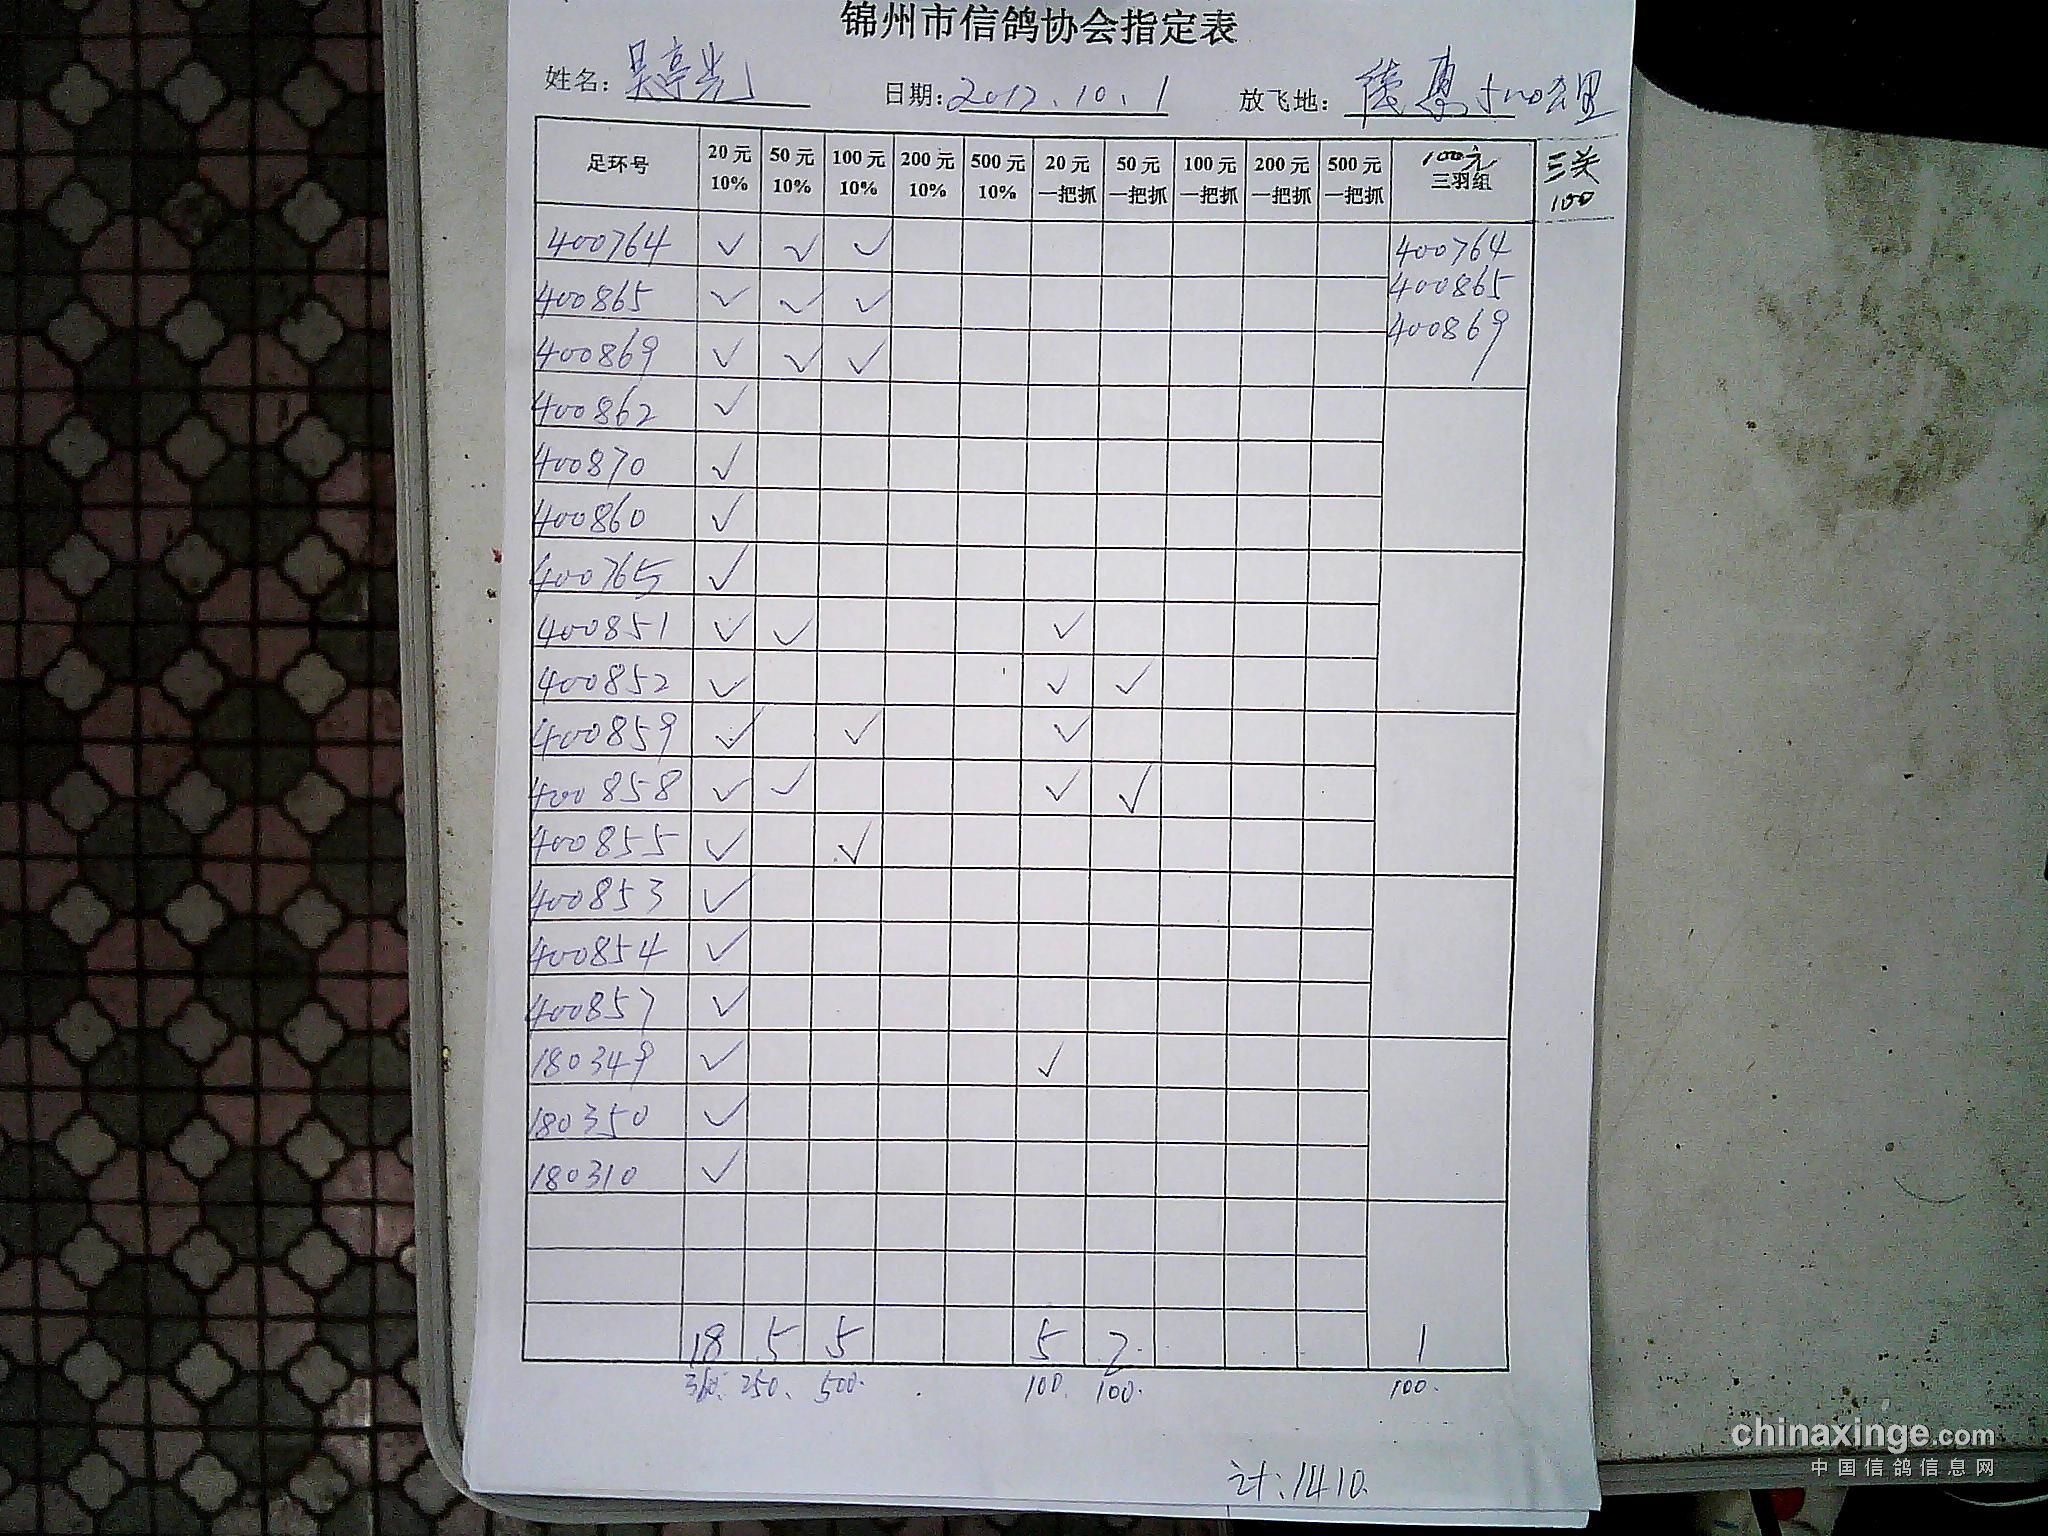 锦州市信鸽协会指定表
姓名: 吴亭光 日期: 2012.10.1 放飞地: 德惠500公里
足环号 20元10% 50元10% 100元10% 200元10% 500元10% 20元一把抓 50元一把抓 100元一把抓 200元一把抓 500元一把抓 100元三羽组 三关100
400764 ✓ ✓ ✓ 400764
400865 ✓ ✓ ✓ 400865
400869 ✓ ✓ ✓ 400869
400862 ✓
400870 ✓
400860 ✓
400765 ✓
400851 ✓ ✓ ✓
400852 ✓ ✓ ✓
400859 ✓ ✓ ✓
400858 ✓ ✓ ✓ ✓
400855 ✓ ✓
400853 ✓
400854 ✓
400857 ✓
180349 ✓ ✓
180350 ✓
180310 ✓
18 5 5 5 2 1
360. 250. 500. 100. 100. 100.
计:1410.
chinaxinge.com
中国信鸽信息网